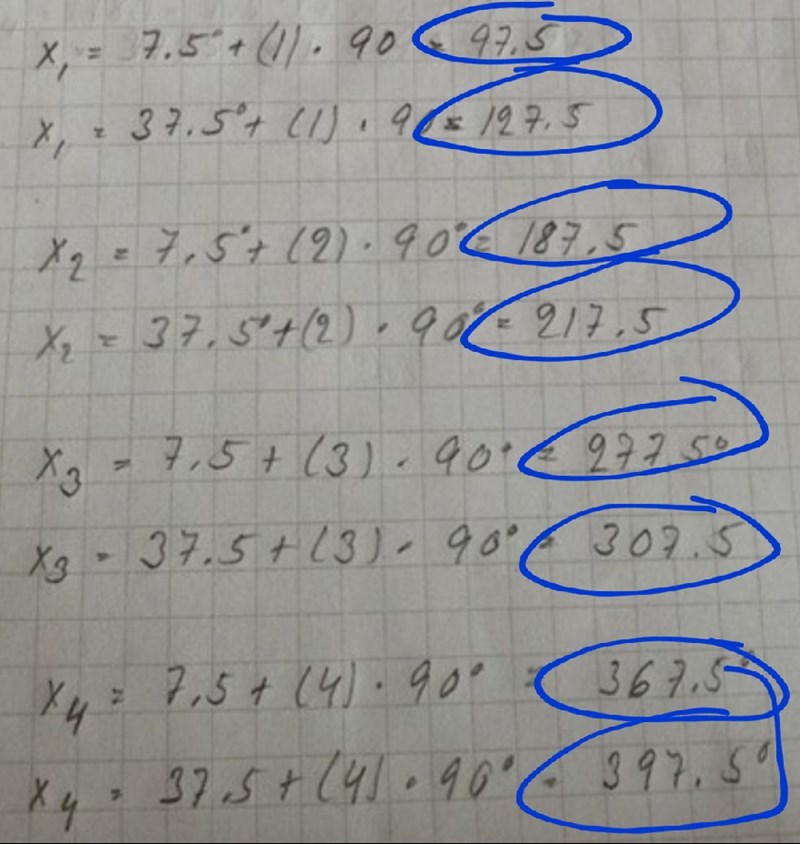 x₁ = 7.5° + (1) · 90 = 97.5
x₁ = 37.5° + (1) · 90 = 127.5
x₂ = 7.5° + (2) · 90° = 187.5
x₂ = 37.5° + (2) · 90° = 217.5
x₃ = 7.5 + (3) · 90° = 277.5°
x₃ = 37.5 + (3) · 90° = 307.5
x₄ = 7.5 + (4) · 90° = 367.5°
x₄ = 37.5 + (4) · 90° = 397.5°